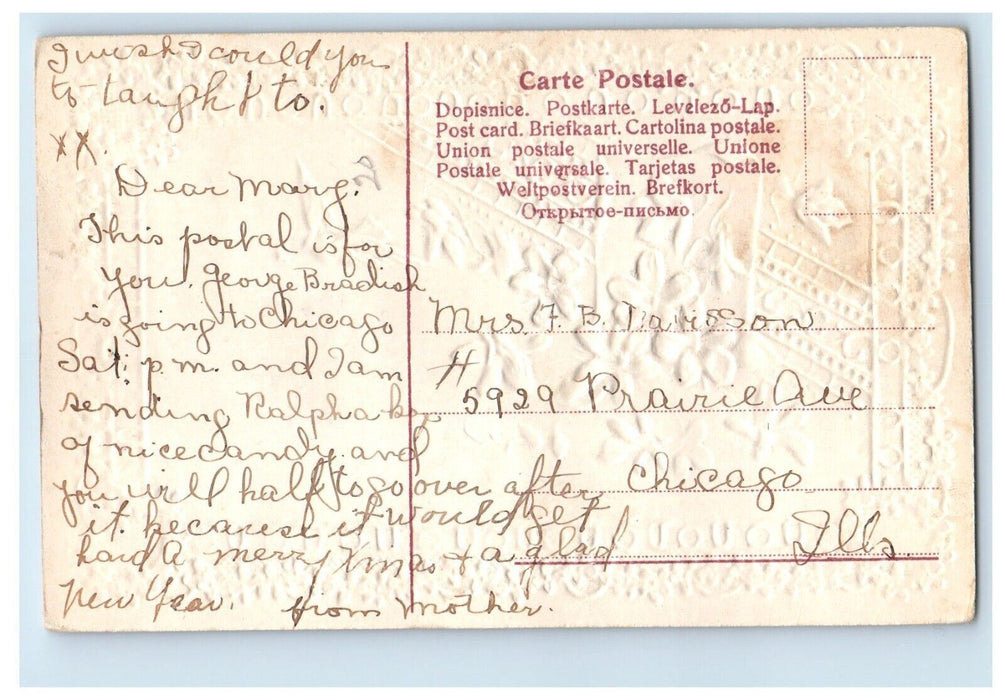 I wish I could you
to taught to.
XX.
Dear Mary.
This postal is for
you. George Bradish
is going to Chicago
Sat. p.m. and I am
sending Ralph a box
of nice candy and
you will half to go over after
it because it would get
hard A merry Xmas + a glad
New Year. from Mother.
Carte Postale.
Dopisnice. Postkarte. Levelező-Lap.
Post card. Briefkaart. Cartolina postale.
Union postale universelle. Unione
Postale universale. Tarjetas postale.
Weltpostverein. Brefkort.
Открытое-письмо.
Mrs. F. B. Davisson
# 5929 Prairie Ave
Chicago
Ills.